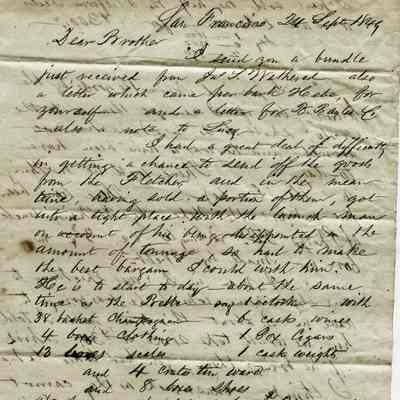 San Francisco 24 Sept. 1849
Dear Brother
I send you a bundle
just received from Jn. S. Wethered also
a letter which came per bark Hebe for
yourself and a letter for
also a note to Lucy
I had a great deal of difficulty
in getting a chance to send off the goods
from the Fletcher, and in the mean
time, having sold a portion of them, got
into a tight place with the launch man
on account of his being disappointed in the
amount of tonnage so had to make
the best bargain I could with him.
He is to start to day about the same
time as the with
38 basket Champagne 6 cask wines
4 box clothing 1 Box Cigars
13 scales 1 cask weights
and 4 crates tin ware
and 8 boxes shoes